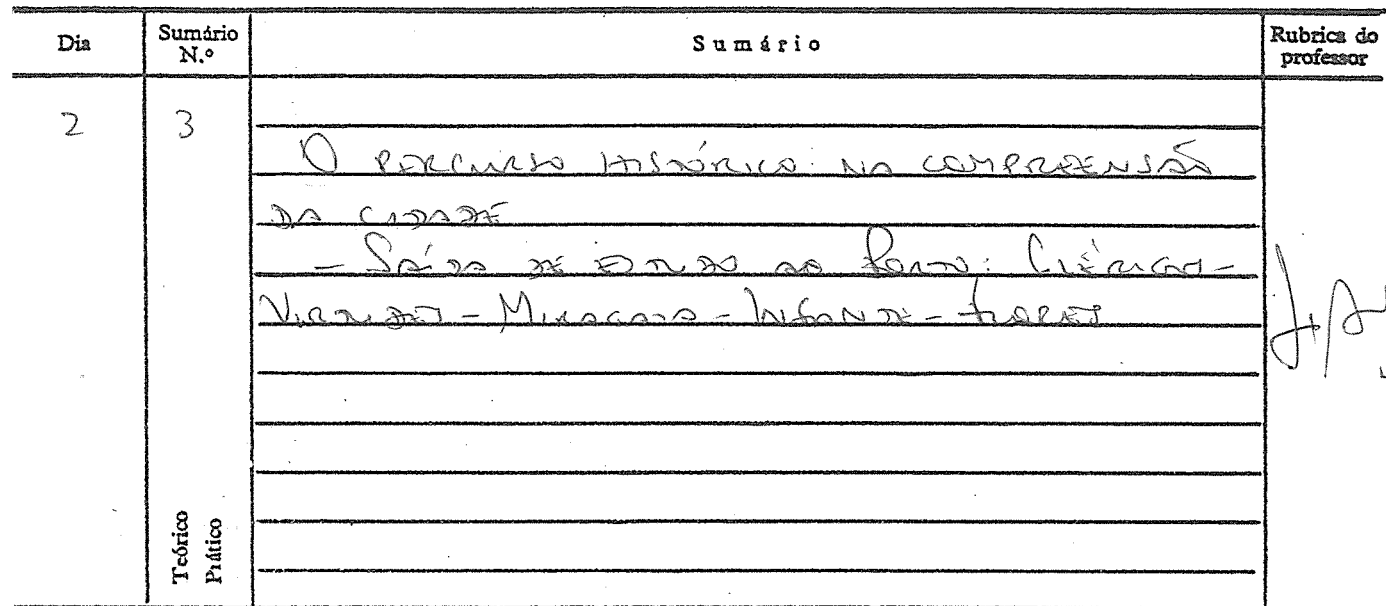 Dia Sumário N.º Sumário Rubrica do professor
2 3
O PERCURSO HISTÓRICO NA COMPREENSÃO
DA CIDADE
- SAÍDA DE ESTUDO AO PORTO: CLÉRIGOS-
VIRTUDES - MIRAGAIA - INFANTE -
Teórico
Prático